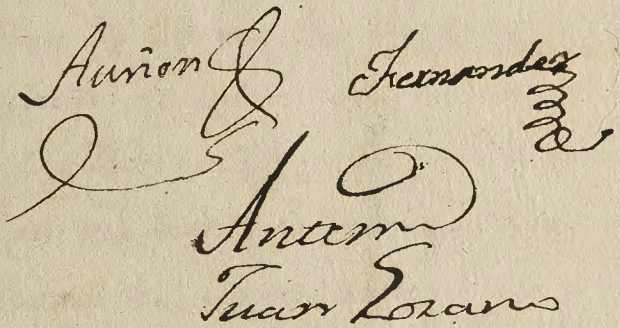 Auñon Fernandez
Antemi
Juan Lozano